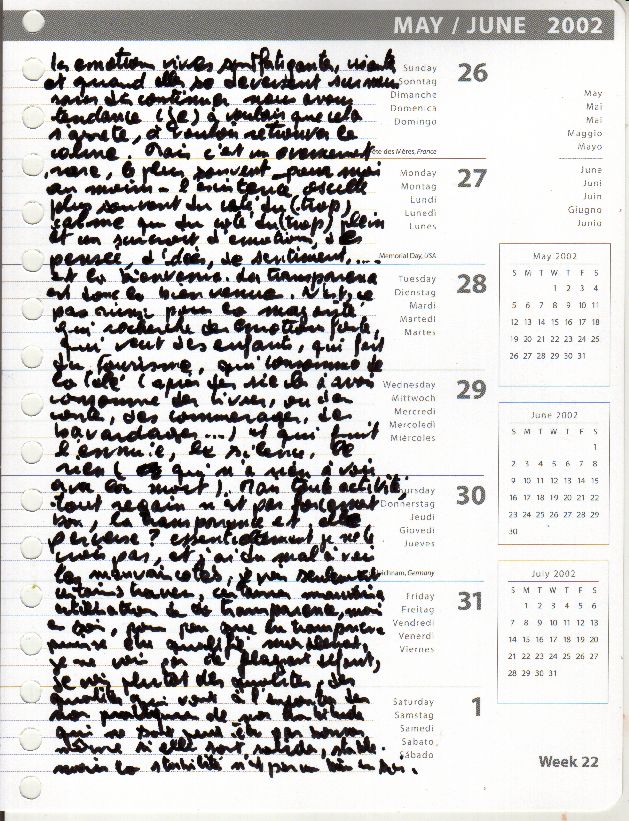 MAY / JUNE 2002
les émotions vives sont fatigantes,
et quand elles se déversent sur nous
sans continuer nous avons
tendance (je) à vouloir que cela
s'arrête, à vouloir retrouver le
calme. Mais c'est un
rare, le plus souvent pour moi
au moins l'existence oscille
plus souvent du côté du (trop)
calme que du côté du (trop) plein
et un surcroît d'émotions, des
pensée, d'idées, de sentiment, ...
est la bienvenue. La transparence
est donc la bienvenue. N'est ce
pas pour la majorité
qui recherche des émotions fortes,
qui veut des enfants, qui fait
du tourisme, qui consomme de
la télé (après des siècles à avoir
consommé des livres, ou des
des commérages, des
bavardages ...) et qui fuit
l'ennuie, le silence, le
rien (qui n'a rien à voir
avec la mort). Mais toute activité,
tout n'est pas forcément
bon, la transparence est elle
perverse ? essentiellement je ne le
crois pas, et j'ai du mal à voir
les mauvais côtés, je vois seulement
certains travers, certaines mauvaises
utilisation de la transparence, mais
en soi, pour peu que la transparence
puisse être qualifié
je ne vois pas de défaut,
je vois plutôt des qualités, des
qualités qui vont à l'encontre de
nos pratiques de nos habitudes
qui ne sont peut être pas bonnes
même si elle sont solides, stable.
mais la stabilité n'est pas un bien en soi.
Sunday 26
Sonntag
Dimanche
Domenica
Domingo
Fête des Mères, France
Monday 27
Montag
Lundi
Lunedì
Lunes
Memorial Day, USA
Tuesday 28
Dienstag
Mardi
Martedì
Martes
Wednesday 29
Mittwoch
Mercredi
Mercoledì
Miércoles
Thursday 30
Donnerstag
Jeudi
Giovedì
Jueves
Fronleichnam, Germany
Friday 31
Freitag
Vendredi
Venerdì
Viernes
Saturday 1
Samstag
Samedi
Sabato
Sábado
May
Mai
Mai
Maggio
Mayo
June
Juni
Juin
Giugno
Junio
May 2002
S M T W T F S
1 2 3 4
5 6 7 8 9 10 11
12 13 14 15 16 17 18
19 20 21 22 23 24 25
26 27 28 29 30 31
June 2002
S M T W T F S
1
2 3 4 5 6 7 8
9 10 11 12 13 14 15
16 17 18 19 20 21 22
23 24 25 26 27 28 29
30
July 2002
S M T W T F S
1 2 3 4 5 6
7 8 9 10 11 12 13
14 15 16 17 18 19 20
21 22 23 24 25 26 27
28 29 30 31
Week 22